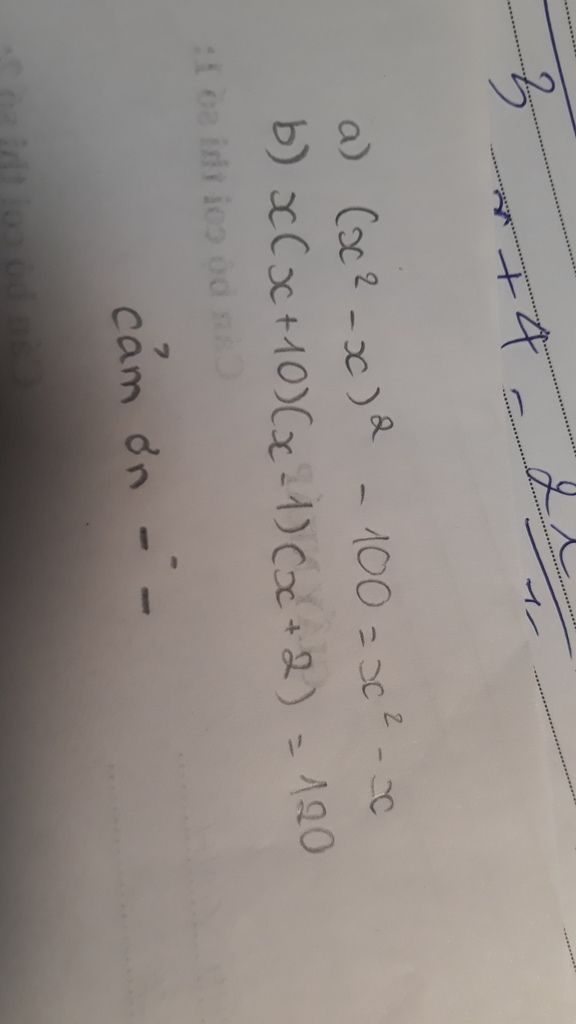 3
+ 4 =
a) (x² - x)² - 100 = x² - x
b) x(x+10)(x-1)(x+2) = 120
cảm ơn - ' -